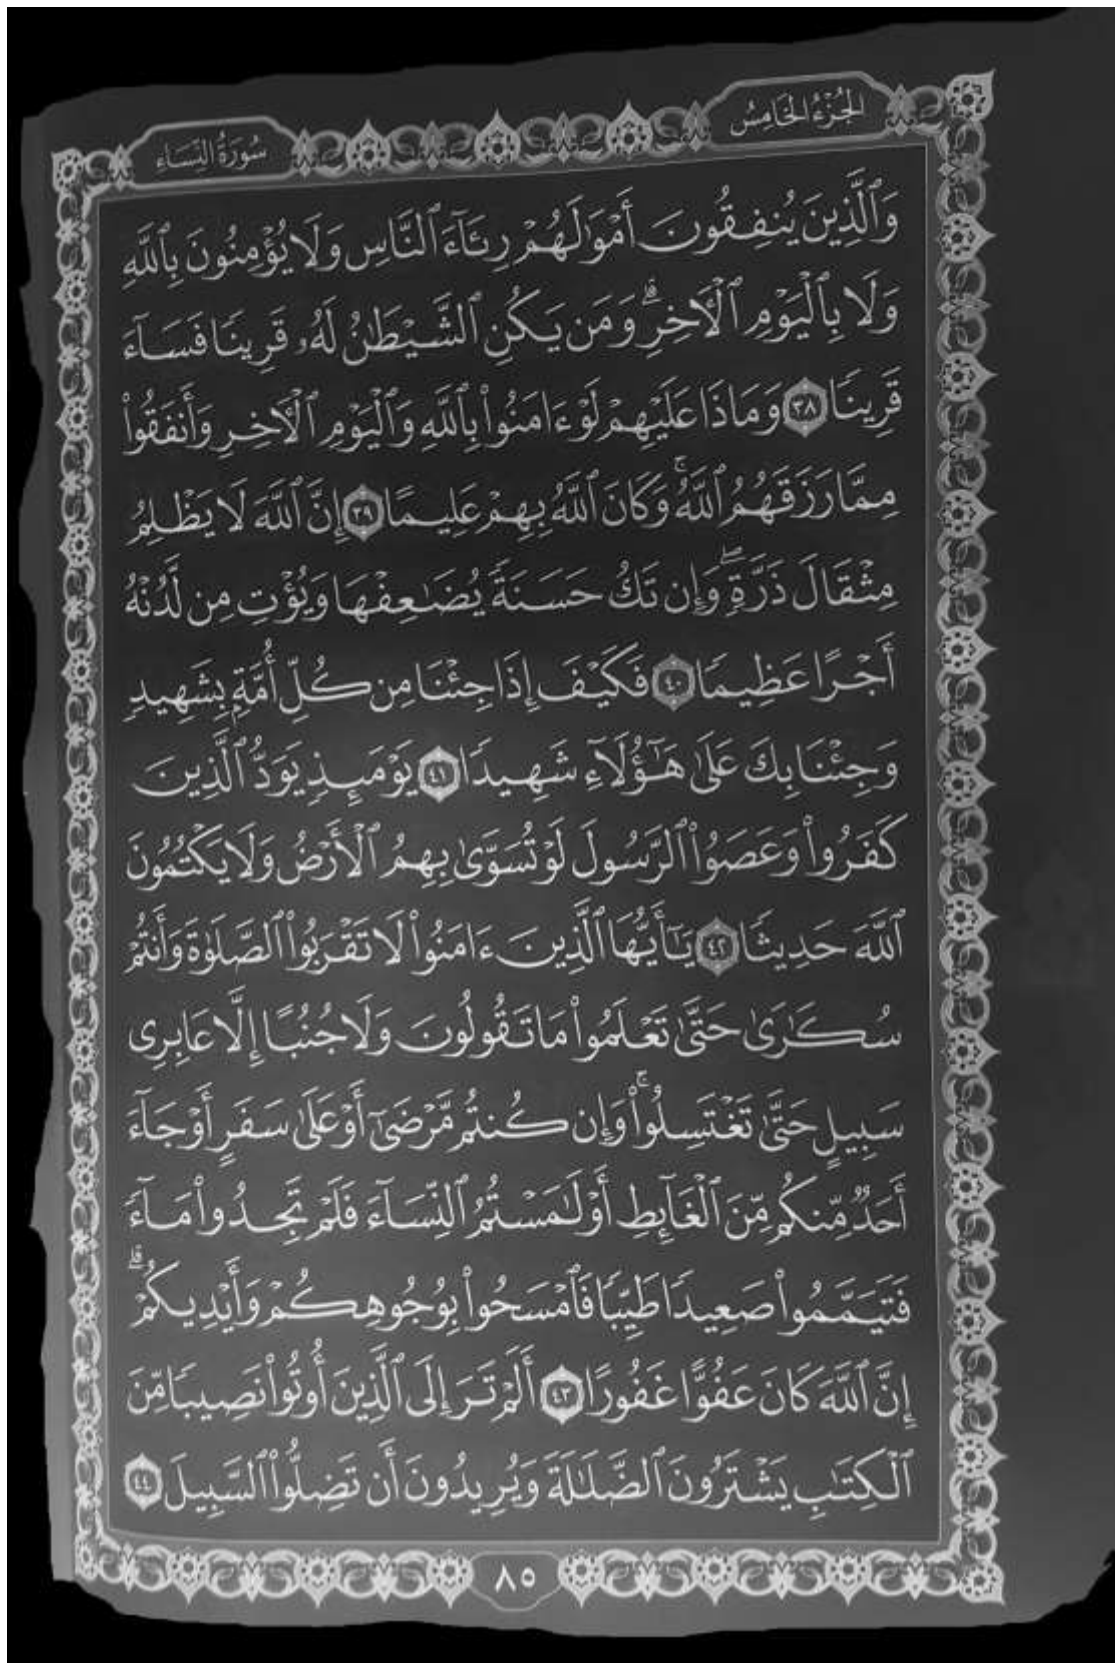 الجُزْءُ الخَامِسُ
سُورَةُ النِّسَاءِ
وَٱلَّذِينَ يُنفِقُونَ أَمْوَٰلَهُمْ رِئَآءَ ٱلنَّاسِ وَلَا يُؤْمِنُونَ بِٱللَّهِ
وَلَا بِٱلْيَوْمِ ٱلْأَخِرِۗ وَمَن يَكُنِ ٱلشَّيْطَٰنُ لَهُۥ قَرِينًا فَسَآءَ
قَرِينًا ٣٨ وَمَاذَا عَلَيْهِمْ لَوْ ءَامَنُوا۟ بِٱللَّهِ وَٱلْيَوْمِ ٱلْأَخِرِ وَأَنفَقُوا۟
مِمَّا رَزَقَهُمُ ٱللَّهُۚ وَكَانَ ٱللَّهُ بِهِمْ عَلِيمًا ٣٩ إِنَّ ٱللَّهَ لَا يَظْلِمُ
مِثْقَالَ ذَرَّةٍۖ وَإِن تَكُ حَسَنَةً يُضَٰعِفْهَا وَيُؤْتِ مِن لَّدُنْهُ
أَجْرًا عَظِيمًا ٤٠ فَكَيْفَ إِذَا جِئْنَا مِن كُلِّ أُمَّةٍۭ بِشَهِيدٍ
وَجِئْنَا بِكَ عَلَىٰ هَٰٓؤُلَآءِ شَهِيدًا ٤١ يَوْمَئِذٍ يَوَدُّ ٱلَّذِينَ
كَفَرُوا۟ وَعَصَوُا۟ ٱلرَّسُولَ لَوْ تُسَوَّىٰ بِهِمُ ٱلْأَرْضُ وَلَا يَكْتُمُونَ
ٱللَّهَ حَدِيثًا ٤٢ يَٰٓأَيُّهَا ٱلَّذِينَ ءَامَنُوا۟ لَا تَقْرَبُوا۟ ٱلصَّلَوٰةَ وَأَنتُمْ
سُكَٰرَىٰ حَتَّىٰ تَعْلَمُوا۟ مَا تَقُولُونَ وَلَا جُنُبًا إِلَّا عَابِرِى
سَبِيلٍ حَتَّىٰ تَغْتَسِلُوا۟ۚ وَإِن كُنتُم مَّرْضَىٰٓ أَوْ عَلَىٰ سَفَرٍ أَوْ جَآءَ
أَحَدٌ مِّنكُم مِّنَ ٱلْغَآئِطِ أَوْ لَٰمَسْتُمُ ٱلنِّسَآءَ فَلَمْ تَجِدُوا۟ مَآءً
فَتَيَمَّمُوا۟ صَعِيدًا طَيِّبًا فَٱمْسَحُوا۟ بِوُجُوهِكُمْ وَأَيْدِيكُمْۗ
إِنَّ ٱللَّهَ كَانَ عَفُوًّا غَفُورًا ٤٣ أَلَمْ تَرَ إِلَى ٱلَّذِينَ أُوتُوا۟ نَصِيبًا مِّنَ
ٱلْكِتَٰبِ يَشْتَرُونَ ٱلضَّلَٰلَةَ وَيُرِيدُونَ أَن تَضِلُّوا۟ ٱلسَّبِيلَ ٤٤
٨٥